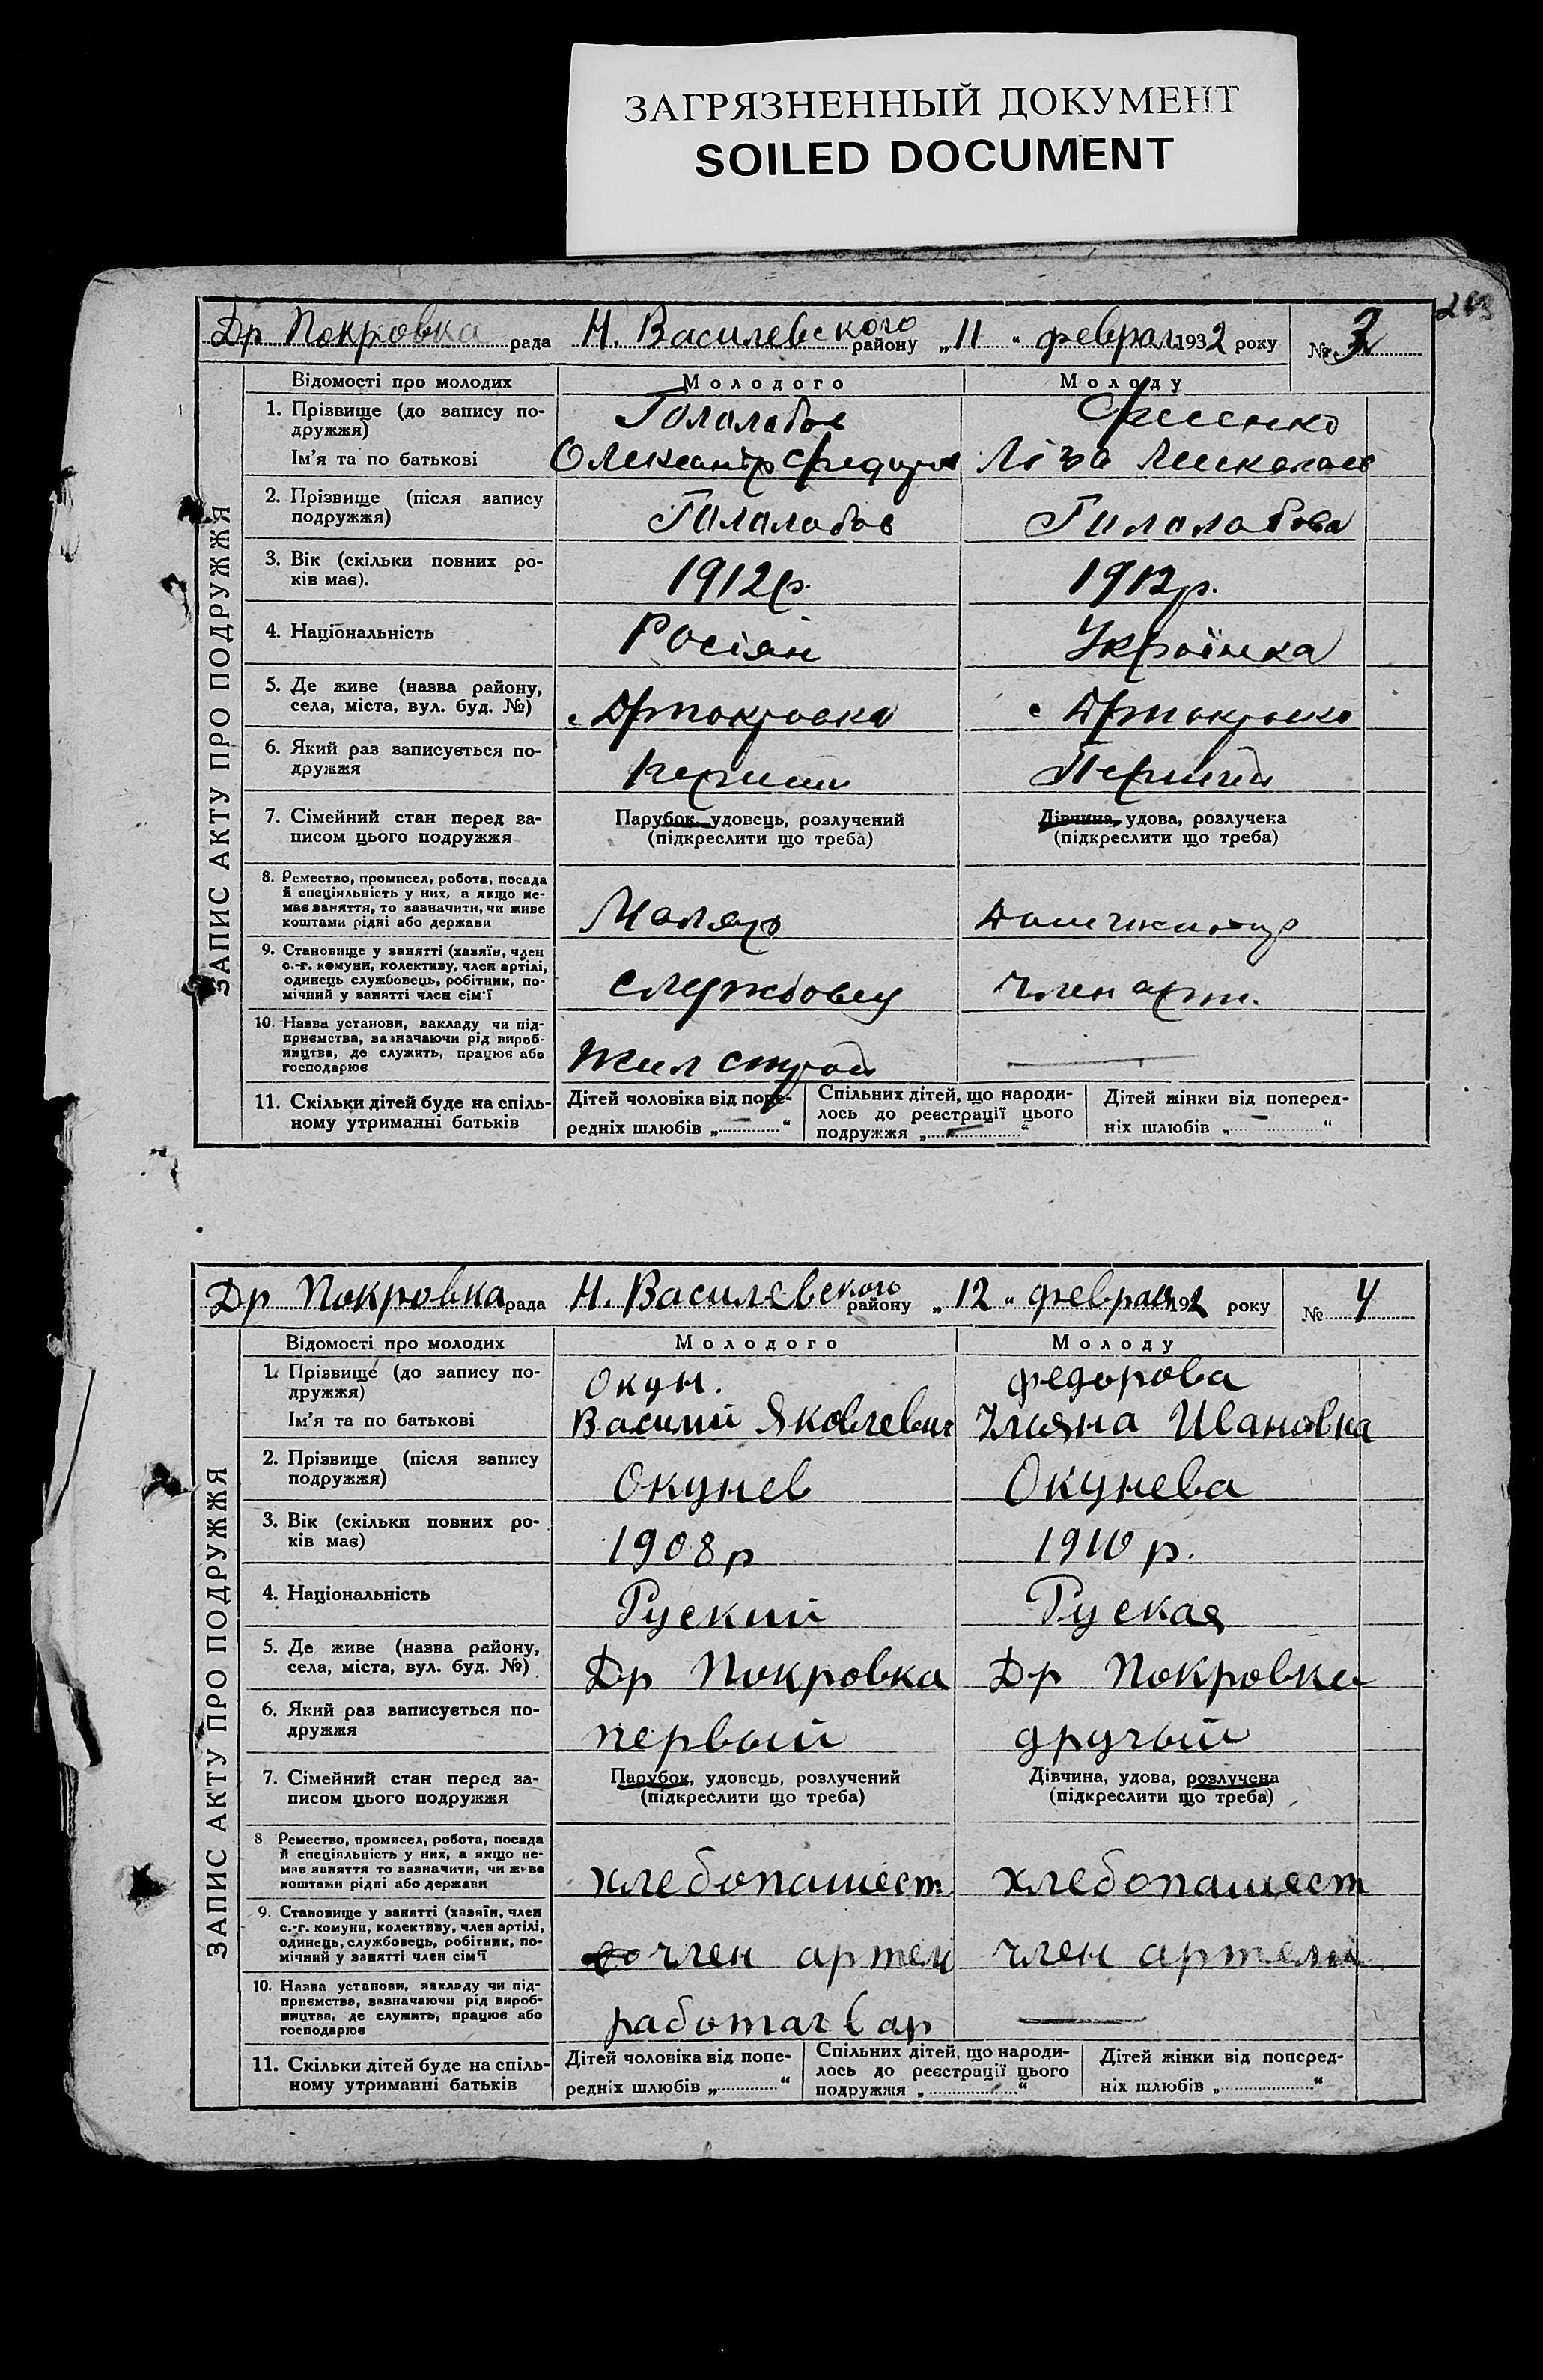 ЗАГРЯЗНЕННЫЙ ДОКУМЕНТ
SOILED DOCUMENT
Др Покровка рада Н. Василевского району „11“ феврал 1932 року № 3
ЗАПИС АКТУ ПРО ПОДРУЖЖЯ
Відомості про молодих Молодого Молоду
1. Прізвище (до запису подружжя) Гололобов
Ім'я та по батькові Олександр Федоров Ліза
2. Прізвище (після запису подружжя) Гололобов Гололобова
3. Вік (скільки повних років має). 1912р. 1912р.
4. Національність Росіян Українка
5. Де живе (назва району, села, міста, вул. буд. №) с Дрпокровка с Дрпокровка
6. Який раз записується подружжя Перший Перший
7. Сімейний стан перед записом цього подружжя Парубок, удовець, розлучений (підкреслити що треба) Дівчина, удова, розлучена (підкреслити що треба)
8. Ремество, промисел, робота, посада й спеціяльність у них, а якщо немає заняття, то зазначити, чи живе коштами рідні або держави Маляр
9. Становище у занятті (хазяїн, член с.-г. комуни, колективу, член артілі, одинець службовець, робітник, помічний у занятті член сім'ї службовец член арт.
10. Назва установи, закладу чи підприємства, зазначаючи рід виробництва, де служить, працює або господарює Жил строй —
11. Скільки дітей буде на спільному утриманні батьків Дітей чоловіка від попередніх шлюбів „—“ Спільних дітей, що народилось до реєстрації цього подружжя „—“ Дітей жінки від попередніх шлюбів „—“
Др Покровка рада Н. Василевского району „12“ февраля 192 року № 4
ЗАПИС АКТУ ПРО ПОДРУЖЖЯ
Відомості про молодих Молодого Молоду
1. Прізвище (до запису подружжя) Окун. Федорова
Ім'я та по батькові Василий Яковлевич Ульяна Ивановка
2. Прізвище (після запису подружжя) Окунев Окунева
3. Вік (скільки повних років має) 1908р 1910р.
4. Національність Руский Руская
5. Де живе (назва району, села, міста, вул. буд. №) Др Покровка Др Покровка
6. Який раз записується подружжя первый другый
7. Сімейний стан перед записом цього подружжя Парубок, удовець, розлучений (підкреслити що треба) Дівчина, удова, розлучена (підкреслити що треба)
8 Ремество, промисел, робота, посада й спеціяльність у них, а якщо немає заняття то зазначити, чи живе коштами рідні або держави хлебопашест. хлебопашест
9. Становище у занятті (хазяїн, член с.-г. комуни, колективу, член артілі, одинець, службовець, робітник, помічний у занятті член сім'ї член артели член артели
10. Назва установи, закладу чи підприємства, зазначаючи рід виробництва, де служить, працює або господарює работаг в ар —
11. Скільки дітей буде на спільному утриманні батьків Дітей чоловіка від попередніх шлюбів „“ Спільних дітей, що народилось до реєстрації цього подружжя „“ Дітей жінки від попередніх шлюбів „“